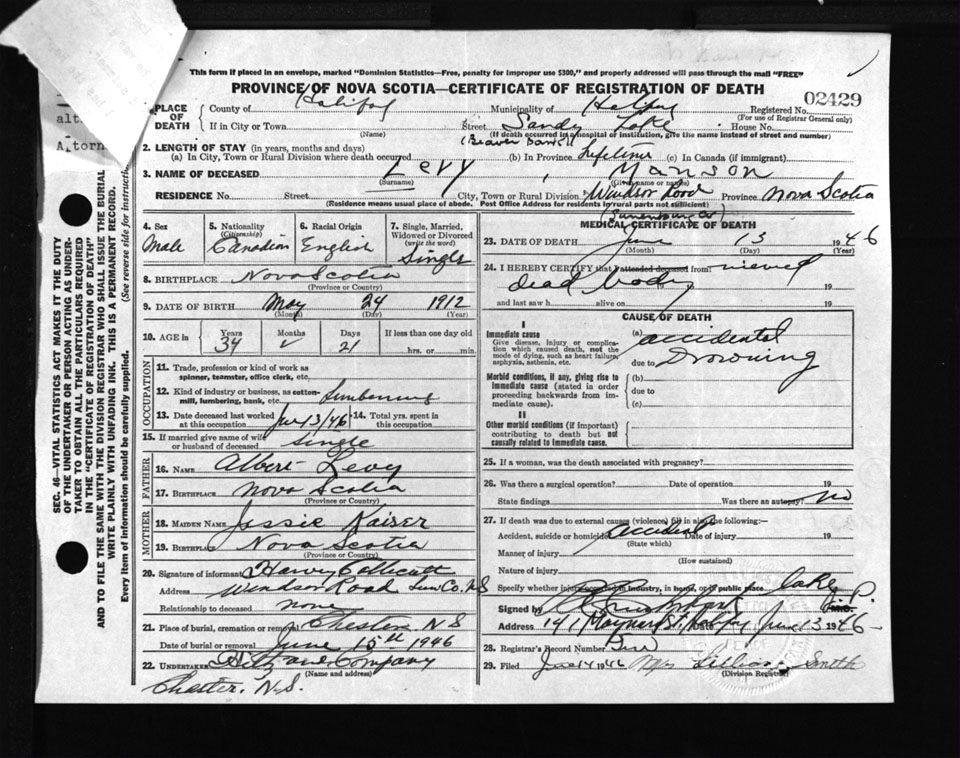 This form if placed in an envelope, marked "Dominion Statistics—Free, penalty for improper use $300," and properly addressed will pass through the mail "FREE"
PROVINCE OF NOVA SCOTIA—CERTIFICATE OF REGISTRATION OF DEATH
02429
1. PLACE OF DEATH County of Halifax Municipality of Halifax Registered No.
(For use of Registrar General only)
If in City or Town (Name) Street Sandy Lake House No.
(If death occurred in a hospital or institution, give the name instead of street and number)
2. LENGTH OF STAY (in years, months and days)
(a) In City, Town or Rural Division where death occurred (b) In Province Lifetime (c) In Canada (if immigrant)
3. NAME OF DECEASED Levy, Manson
(Surname) (Given name or names)
RESIDENCE No. Street City, Town or Rural Division Windsor Road Province Nova Scotia
(Residence means usual place of abode. Post Office Address for residence in rural parts not sufficient)
4. Sex Male
5. Nationality (Citizenship) Canadian
6. Racial Origin English
7. Single, Married, Widowed or Divorced (write the word) Single
8. BIRTHPLACE Nova Scotia
(Province or Country)
9. DATE OF BIRTH May 24 1912
(Month) (Day) (Year)
10. AGE in Years 34 Months Days 21 If less than one day old hrs. or min.
OCCUPATION
11. Trade, profession or kind of work as spinner, teamster, office clerk, etc.
12. Kind of industry or business, as cotton-mill, lumbering, bank, etc. Lumbering
13. Date deceased last worked at this occupation June 13/46 14. Total yrs. spent in this occupation
15. If married give name of wife or husband of deceased Single
FATHER
16. NAME Albert Levy
17. BIRTHPLACE Nova Scotia
(Province or Country)
MOTHER
18. MAIDEN NAME Jessie Kaiser
19. BIRTHPLACE Nova Scotia
(Province or Country)
20. Signature of informant Harvey
Address Windsor Road Lun Co. N.S
Relationship to deceased none
21. Place of burial, cremation or removal Chester N S
Date of burial or removal June 15th 1946
22. UNDERTAKER and Company
(Name and address)
Chester, N.S.
MEDICAL CERTIFICATE OF DEATH
23. DATE OF DEATH June 13 1946
(Month) (Day) (Year)
24. I HEREBY CERTIFY that I attended deceased from viewed
dead body 19
and last saw h alive on 19
CAUSE OF DEATH
I
Immediate cause (a) accidental
Give disease, injury or complication which caused death, not the mode of dying, such as heart failure, asphyxia, asthenia, etc.
due to Drowning
Morbid conditions, if any, giving rise to immediate cause (stated in order proceeding backwards from immediate cause). (b)
due to
(c)
II
Other morbid conditions (if important) contributing to death but not causally related to immediate cause.
25. If a woman, was the death associated with pregnancy?
26. Was there a surgical operation? Date of operation 19
State findings Was there an autopsy? no
27. If death was due to external causes (violence) fill in also the following:—
Accident, suicide or homicide accident Date of injury 19
(State which)
Manner of injury
(How sustained)
Nature of injury
Specify whether injury occurred in industry, in home, or in public place lake
Signed by
Address 141 Maynard St. Date June 13 1946
28. Registrar's Record Number
29. Filed June 14 1946 Mrs Lillian Smith
(Division Registrar)
SEC. 46—VITAL STATISTICS ACT MAKES IT THE DUTY
OF THE UNDERTAKER OR PERSON ACTING AS UNDER-
TAKER TO OBTAIN ALL THE PARTICULARS REQUIRED
IN THE "CERTIFICATE OF REGISTRATION OF DEATH"
AND TO FILE THE SAME WITH THE DIVISION REGISTRAR WHO SHALL ISSUE THE BURIAL
WRITE PLAINLY WITH UNFADING INK. THIS IS A PERMANENT RECORD.
Every item of information should be carefully supplied. (See reverse side for instructions